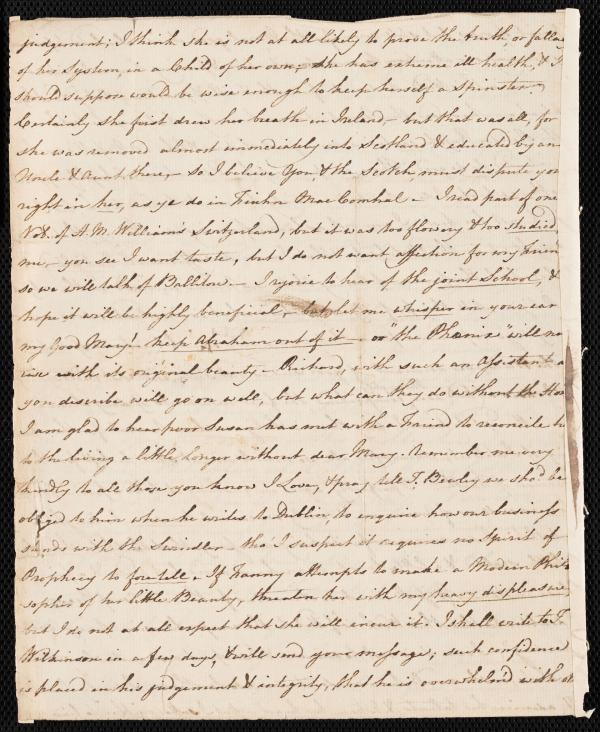 judgement; I think she is not at all likely to prove the truth, or falla
of her System, in a Child of her own, she has extreme ill health, & I
should suppose would be wise enough to keep herself a Spinster –
Certainly she first drew her breath in Ireland – but that was all, for
she was removed almost immediately into Scotland & educated by an
Uncle & Aunt there, – so I believe You, & the Scotch, must dispute you
right in her, as ye do in Finhn Mac Comhal – I read part of one
Vol. of H. M. William's Switzerland, but it was too flowery & too studied
me – you see I want taste, but I do not want affection for my Frien
so we will talk of Ballitore. – I rejoice to hear of the joint School, &
hope it will be highly beneficial, – but let me whisper in your ear
my Good Mary! keep Abraham out of it – or "the Phœnix" will no
rise with its original beauty – Richard, with such an Assistant a
you describe will go on well, but what can they do without the Hon
I am glad to hear poor Susan has met with a Friend to reconcile he
to the living a little longer without dear Mary. Remember me very
kindly to all those you know I Love, & pray tell T. Bewley we sho'd be
oblig'd to him when he writes to Dublin, to enquire how our business
stands with the Swindler – tho' I suspect it requires no Spirit of
Prophecy to foretell. If Fanny attempts to make a Modern Philo
sopher of her little Beauty, threaten her with my heavy displeasure
but I do not at all expect that she will incur it. I shall write to T.
Wilkinson in a few days, & will send your message; such confidence
is placed in his judgement & integrity, that he is overwhelm'd with